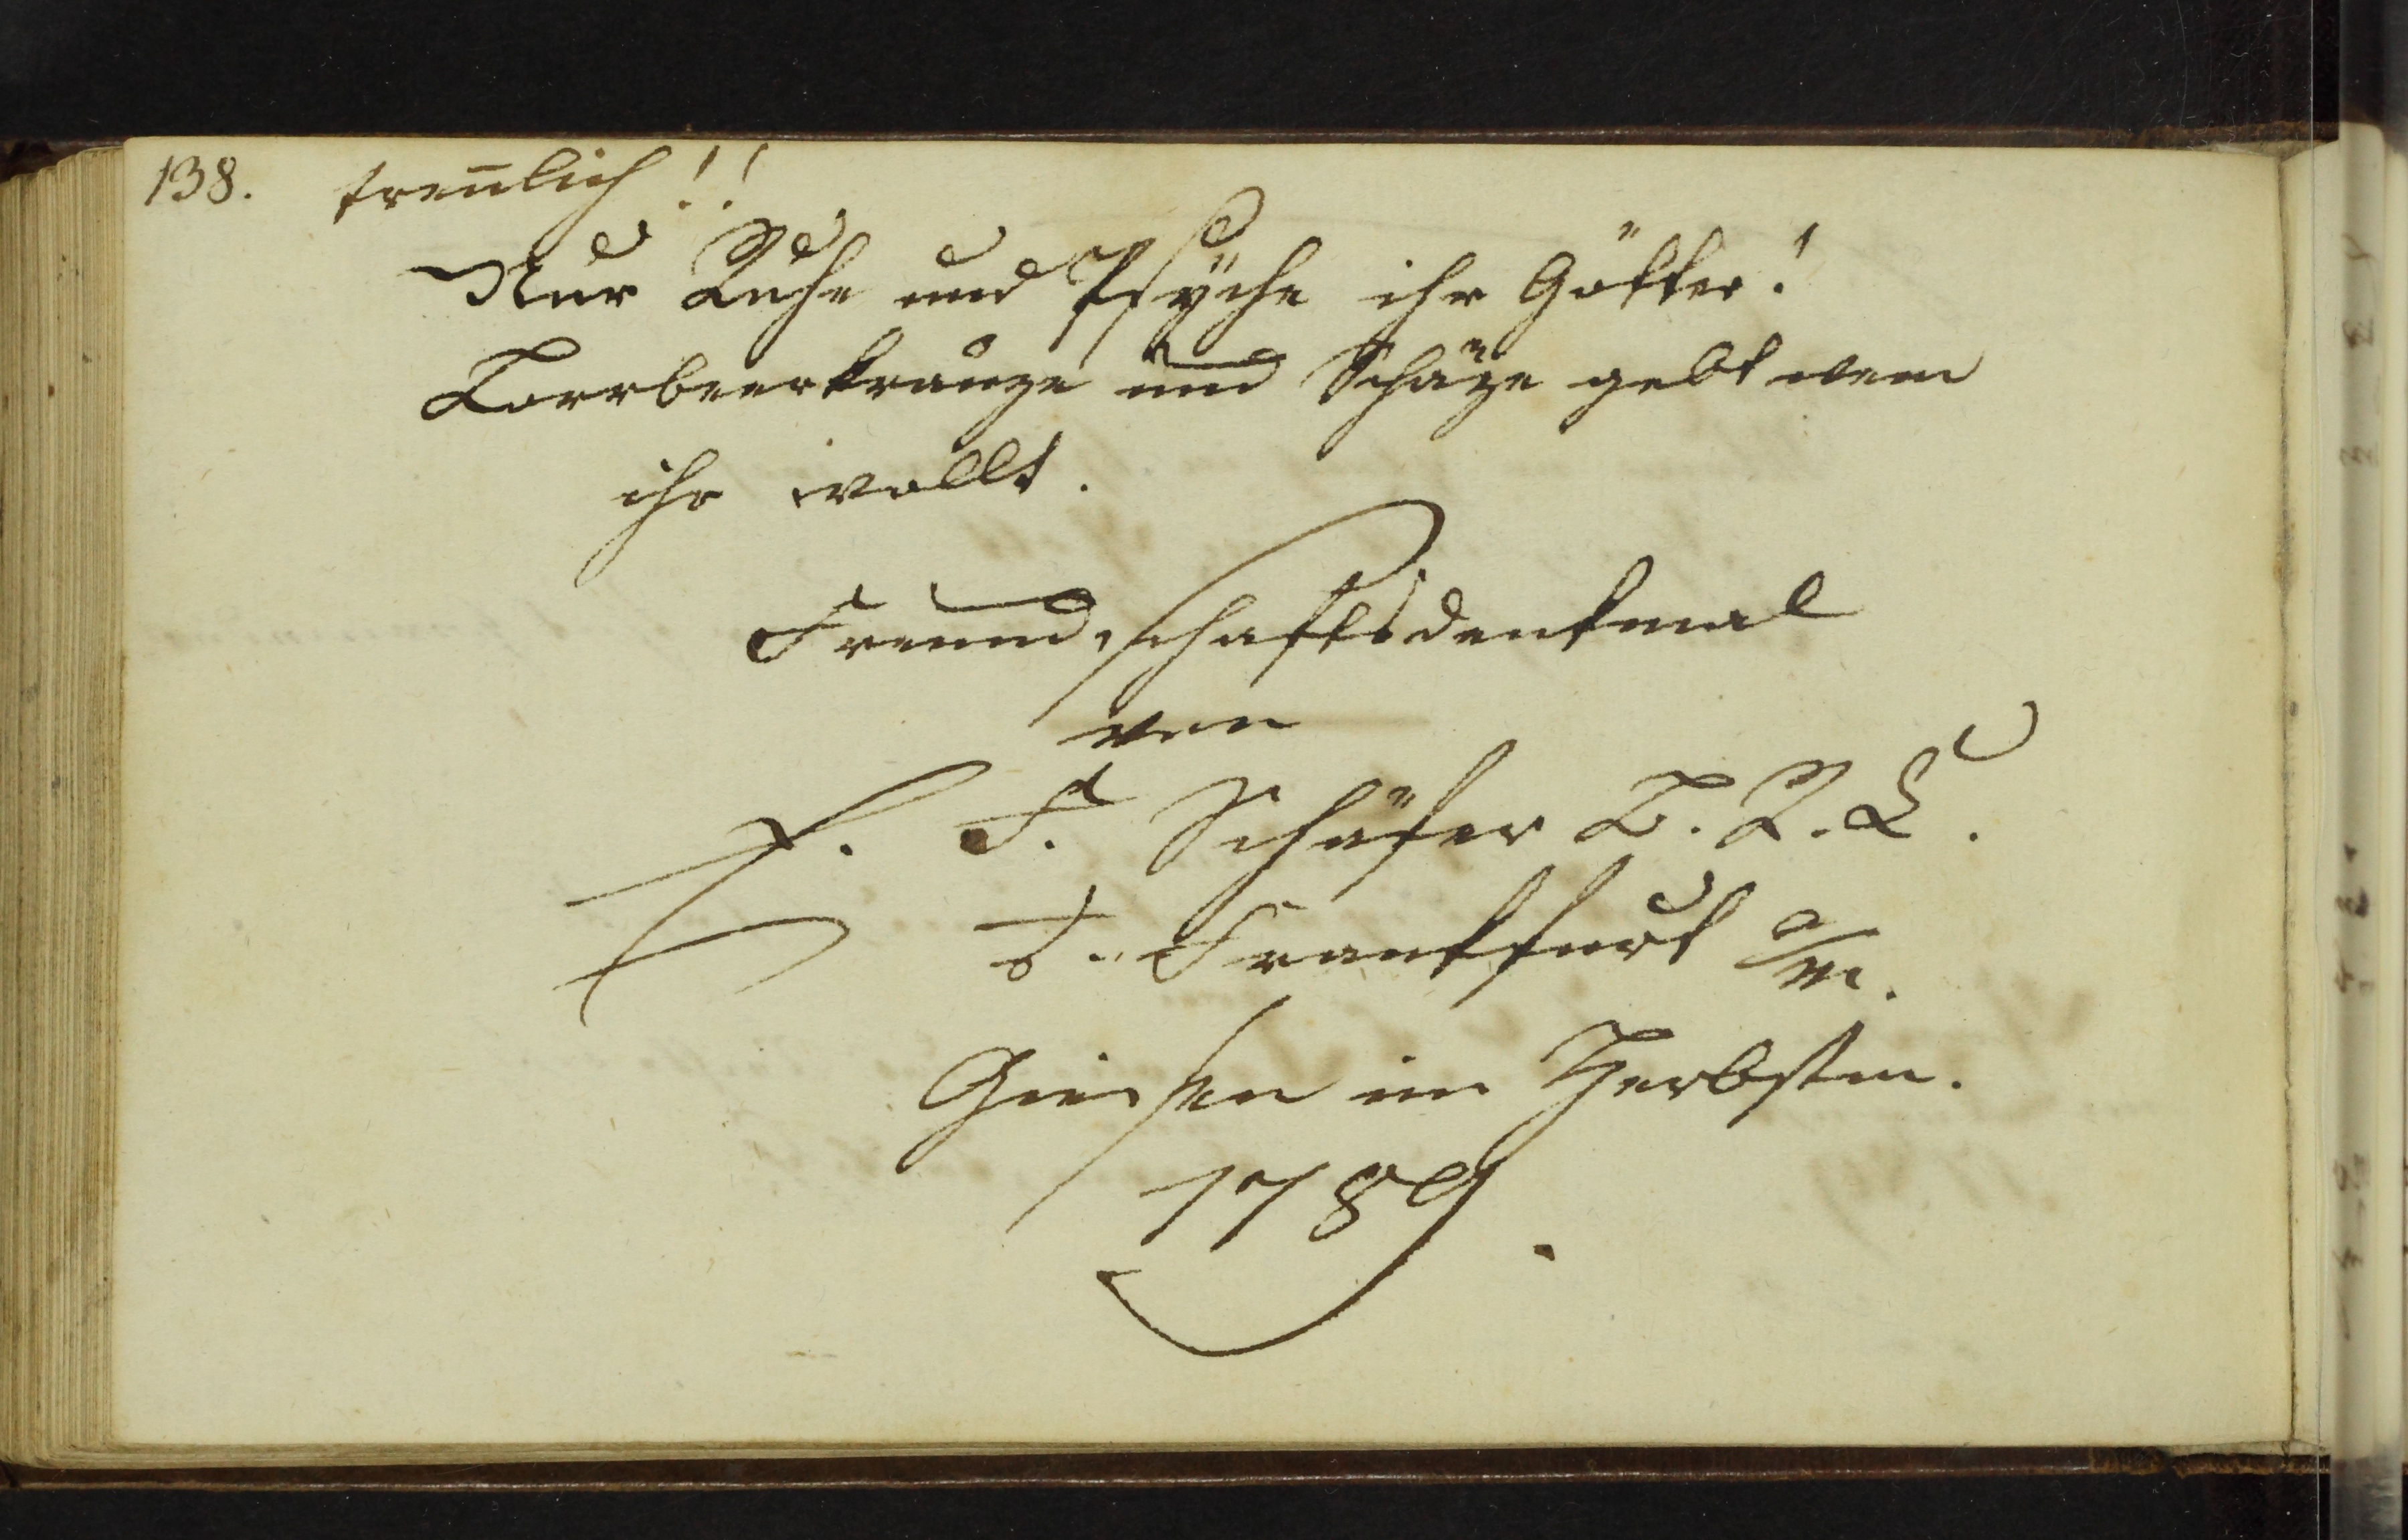 138. treulich!!
Nur Ruhe und Psÿche ihr Götter!
Lorrbeerkränze und Schäze gebt wem
ihr wollt.
Freundschaftsdenkmal
von
F. Schäfer
Frankfurt a/m.
Giessen im Herbstm.
1789.